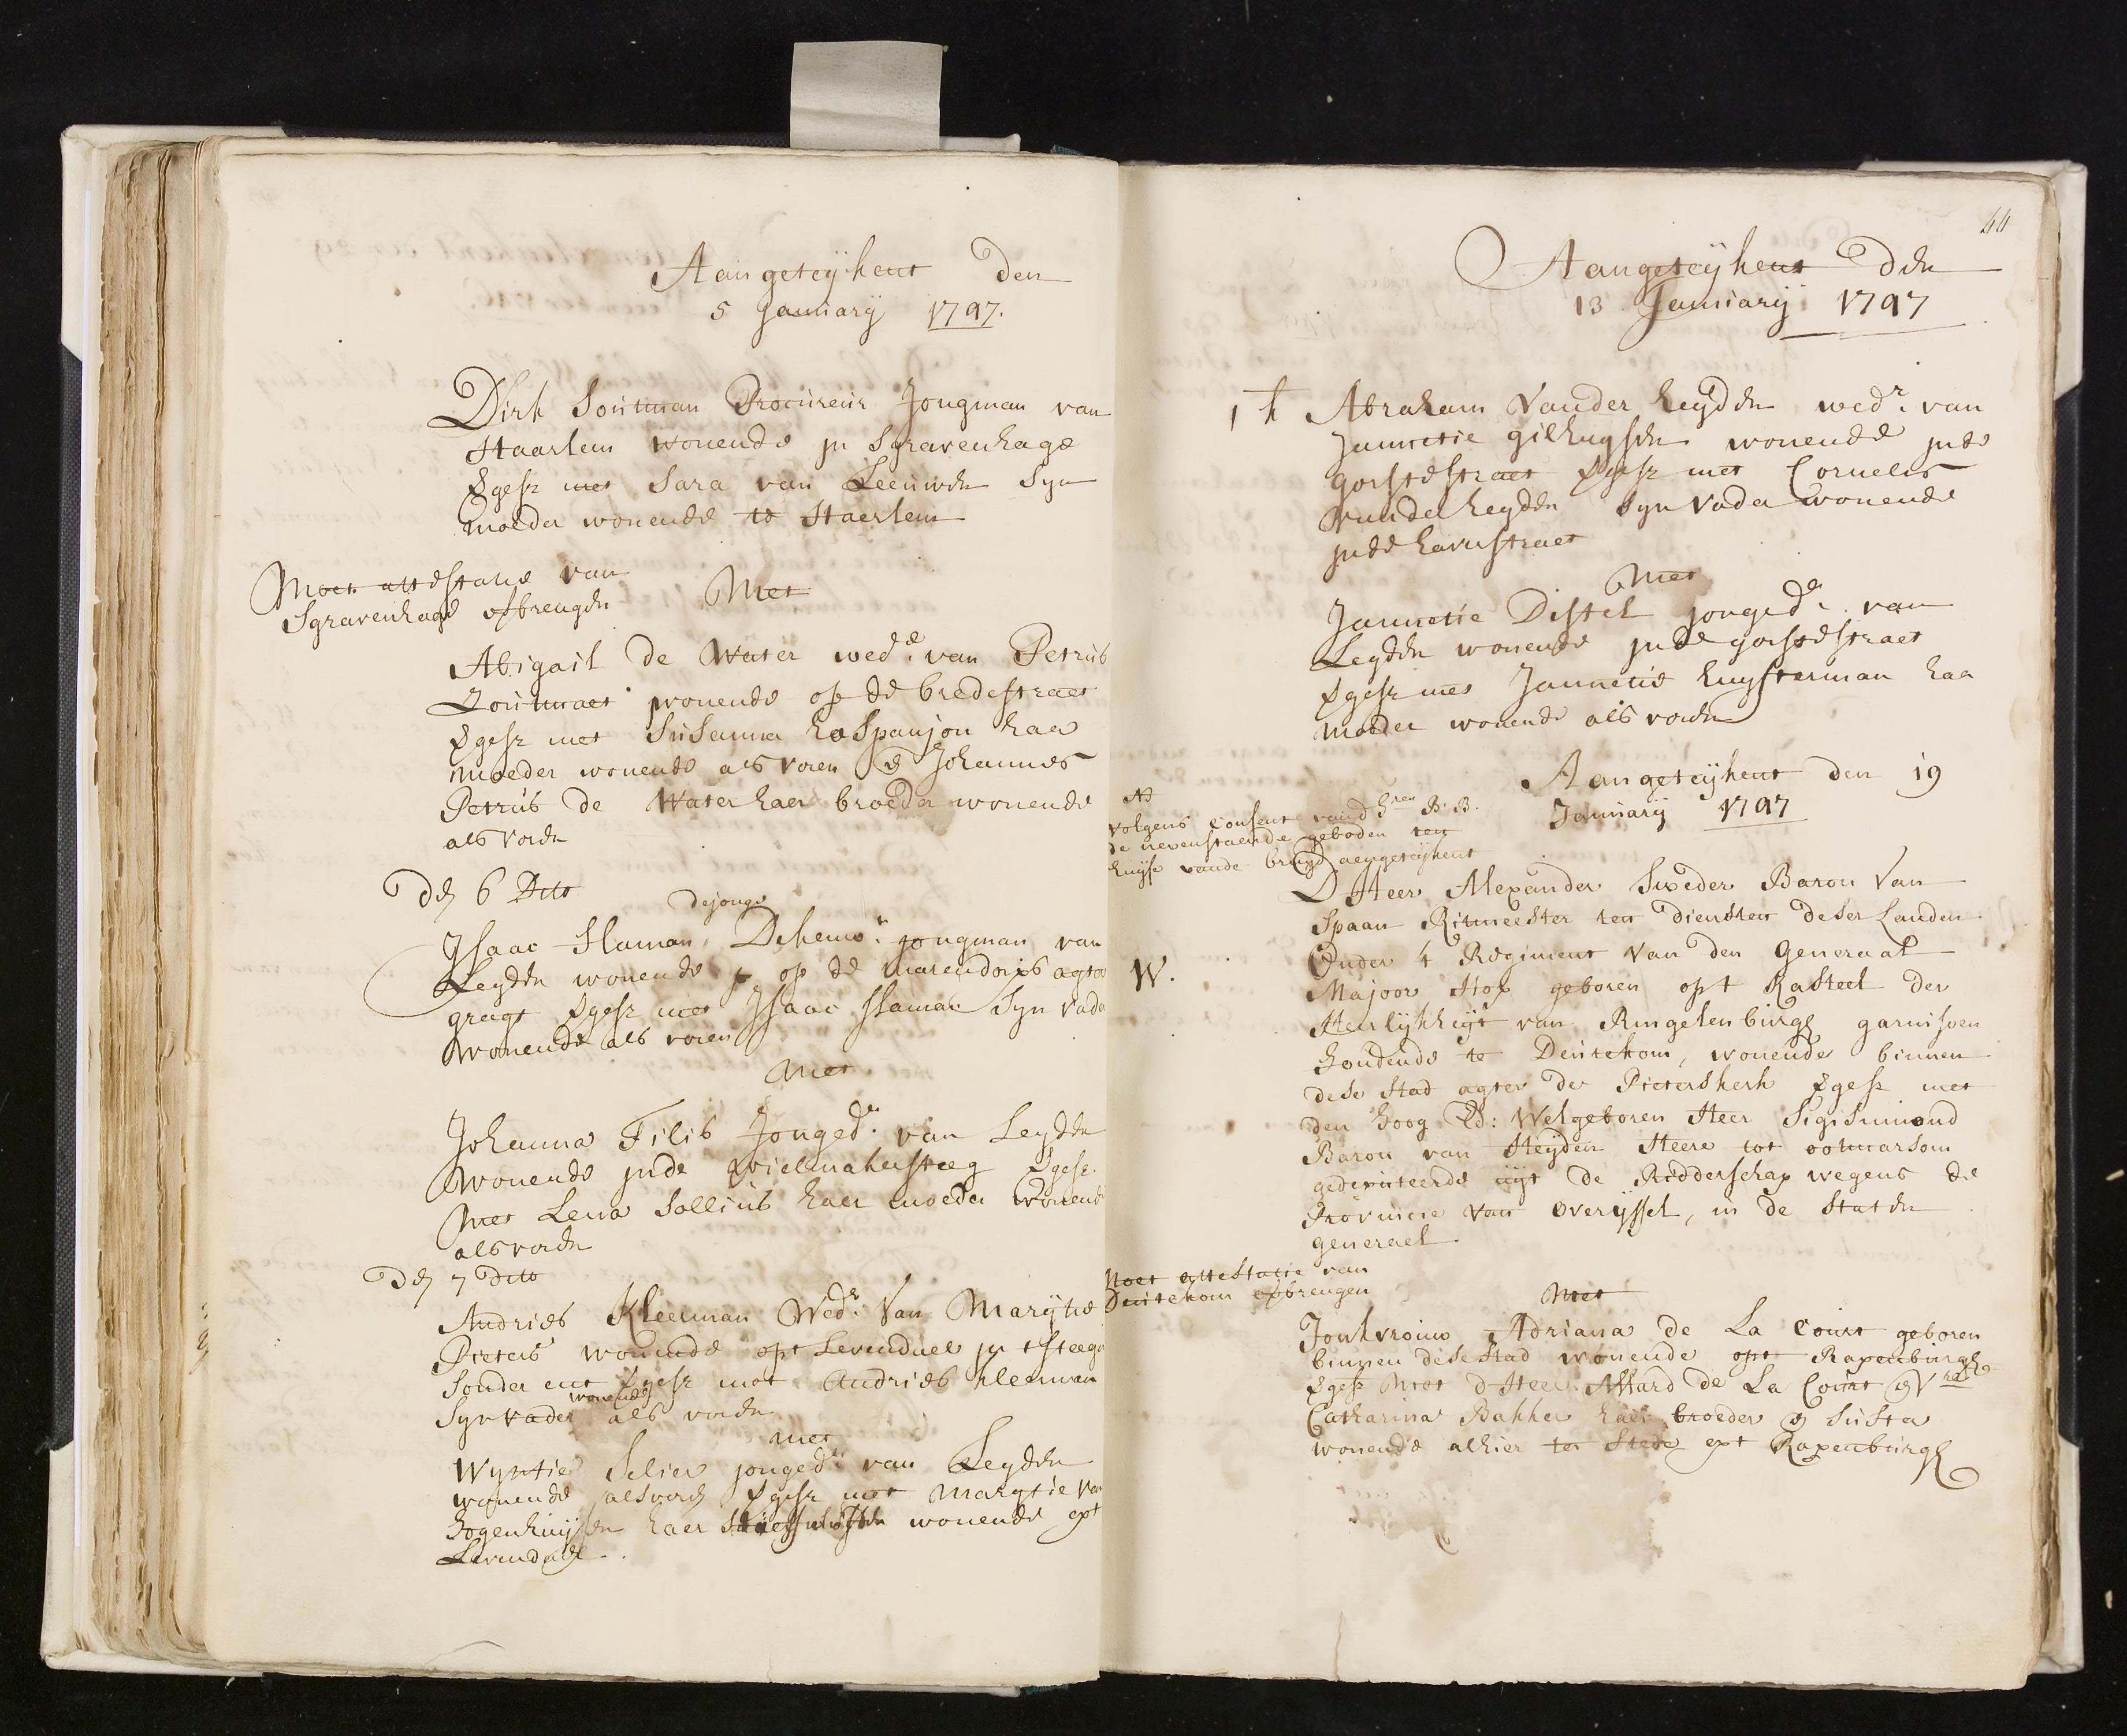 Aangeteykent Den
5 January 1747.
Dirk Soutman Procureur Jongman van
Haarlem wonende in Sgravenhage
vgesz met Sara van Leeuwen Syn
moeder wonende te Haerlem
Moet attestatie van
Sgravenhage opbrengen
Met
Abigail de Water wede. van Petrus
Zoutmaet wonende op de bredestraet
vgesz met Susanna haer
moeder wonende als voren & Johannes
Petrus de Water haer broeder wonende
als voren
Den 6 Dito
de jonge
Isaac Haman, jongman van
Leyden wonende op de marendorps agter
gragt vgesz met Isaac Haman Syn vader
wonende als voren
Met
Johanna Filis Jongedr. van Leyden
wonende in de wielmakersteeg vgesz.
met Lena Sollius haer moeder wonende
als voren
Den 7 Dito
Andries Kleerman Wedr. Van Marijtie
Pieters wonende opt Levendael in t steegie
Sonder ent vgesz met Andries Kleerman
wonende
Syn vader als voren
met
Wijntie Selier jongedr. van Leyden
wonende als voren vgesz met Marytie Van
Hogenhuysen haer wonende opt
Levendael.
44
Aangeteykent Den
13 January 1747
1 h Abraham Vander heyden wedr. van
Jannetie gilhuysen wonende inde
gorstestraet vgesz met Cornelis
vander heyden Syn Vader wonende
inde havestraet
Met
Jannetie Distel jongedr. van
Leyden wonende inde gorstestraet
vgesz met Jannetie huysterman haer
moeder wonende als voren
Aangeteykent den 19
January 1747
NB
volgens Consent vand Hren B: B.
de nevenstaende geboden ten
huyse vande bruyd aengeteykent
D Heer Alexander Sweder Baron Van
Spaan Ritmeester ten Diensten deser Landen
Onder t Regiment Van den Generaal
W.
Majoor Hop geboren opt Kasteel der
Heerlijkheyt van Ringelenburgh garnisoen
houdende te Deutekom, wonende binnen
dese Stad agter de Pieterskerk vgesz met
den Hoog Ed: Welgeboren Heer Sigismond
Baron van Heyden Heere tot ootmarsom
gedeputeerde uyt de Ridderschap wegens de
Provincie van Overijssel, in de Staten
generael
Moet attestatie van
Deutekom opbrengen
Met
Jonkvrouw Adriana de La Court geboren
binnen dese Stad wonende opt Rapenburgh
vgesz Met d Heer Allard de La Court & Vrouwe
Catharina Bakker haer broeder & Suster
wonende alhier ter Stede opt Rapenburgh